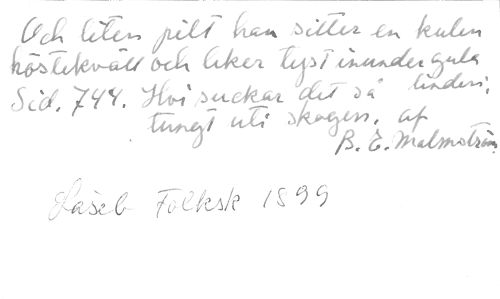 Och liten pilt han sitter en kulen
höstekväll och leker tyst inunder gula
Sid. 744. Hvi suckar det så linden;
tungt uti skogen, af
B. E. Malmström.
Läseb Folksk 1899